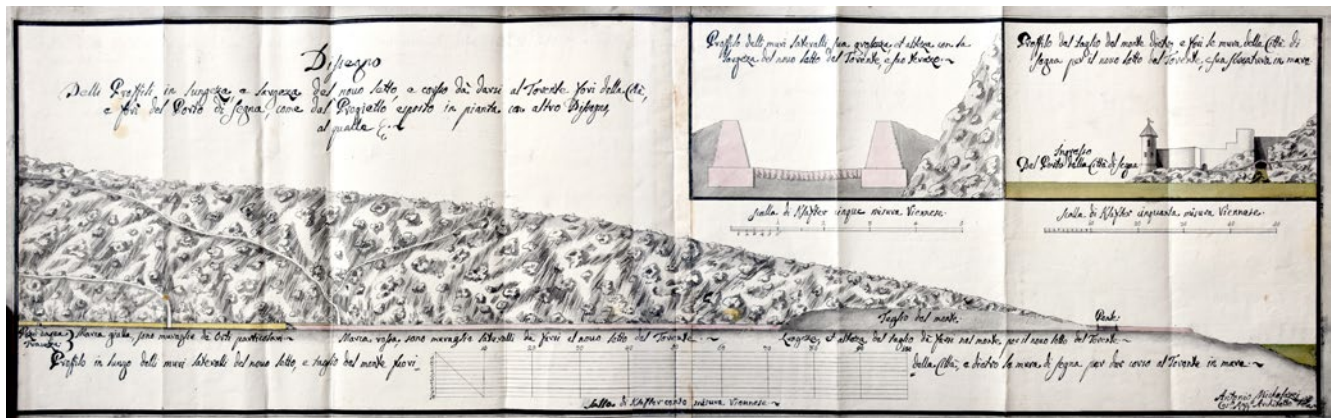 Disegno
Delli Proffili in lungeza e largeza del nouo letto, e corso da darsi al Torente fori della Cità,
e fori del Porto di Segna, come dal Progietto esposto in pianta con altro Disegno,
al qualle
Proffilo delli muri laterali, sua grosseza, et alteza con la
largeza del nouo letto del Torente, e suo
Proffilo del taglio del monte dietro, e fori le mura della Città di
Segna per il nouo letto del Torente, e sua in mare
Ingresso
Del Porto della Città di Segna
scalla di Klafter cinque misura Viennese
scalla di Klafter cinquanta misura Viennese
Taglio del monte
Ponte
Marca gialla, sono muraglie de Orti particolari
Marca rossa, sono muraglie laterali da farsi al nouo letto del Torente
et alteza del taglio da farsi nel monte per il nouo letto del Torente
Proffilo in lungo delli muri laterali del nouo letto, e taglio del monte fuori
della Città, e dietro le mura di Segna per dar corso al Torente in mare
10 20 30 40 50 60 70 80 90 100
scalla di Klafter cento misura Viennese
Antonio